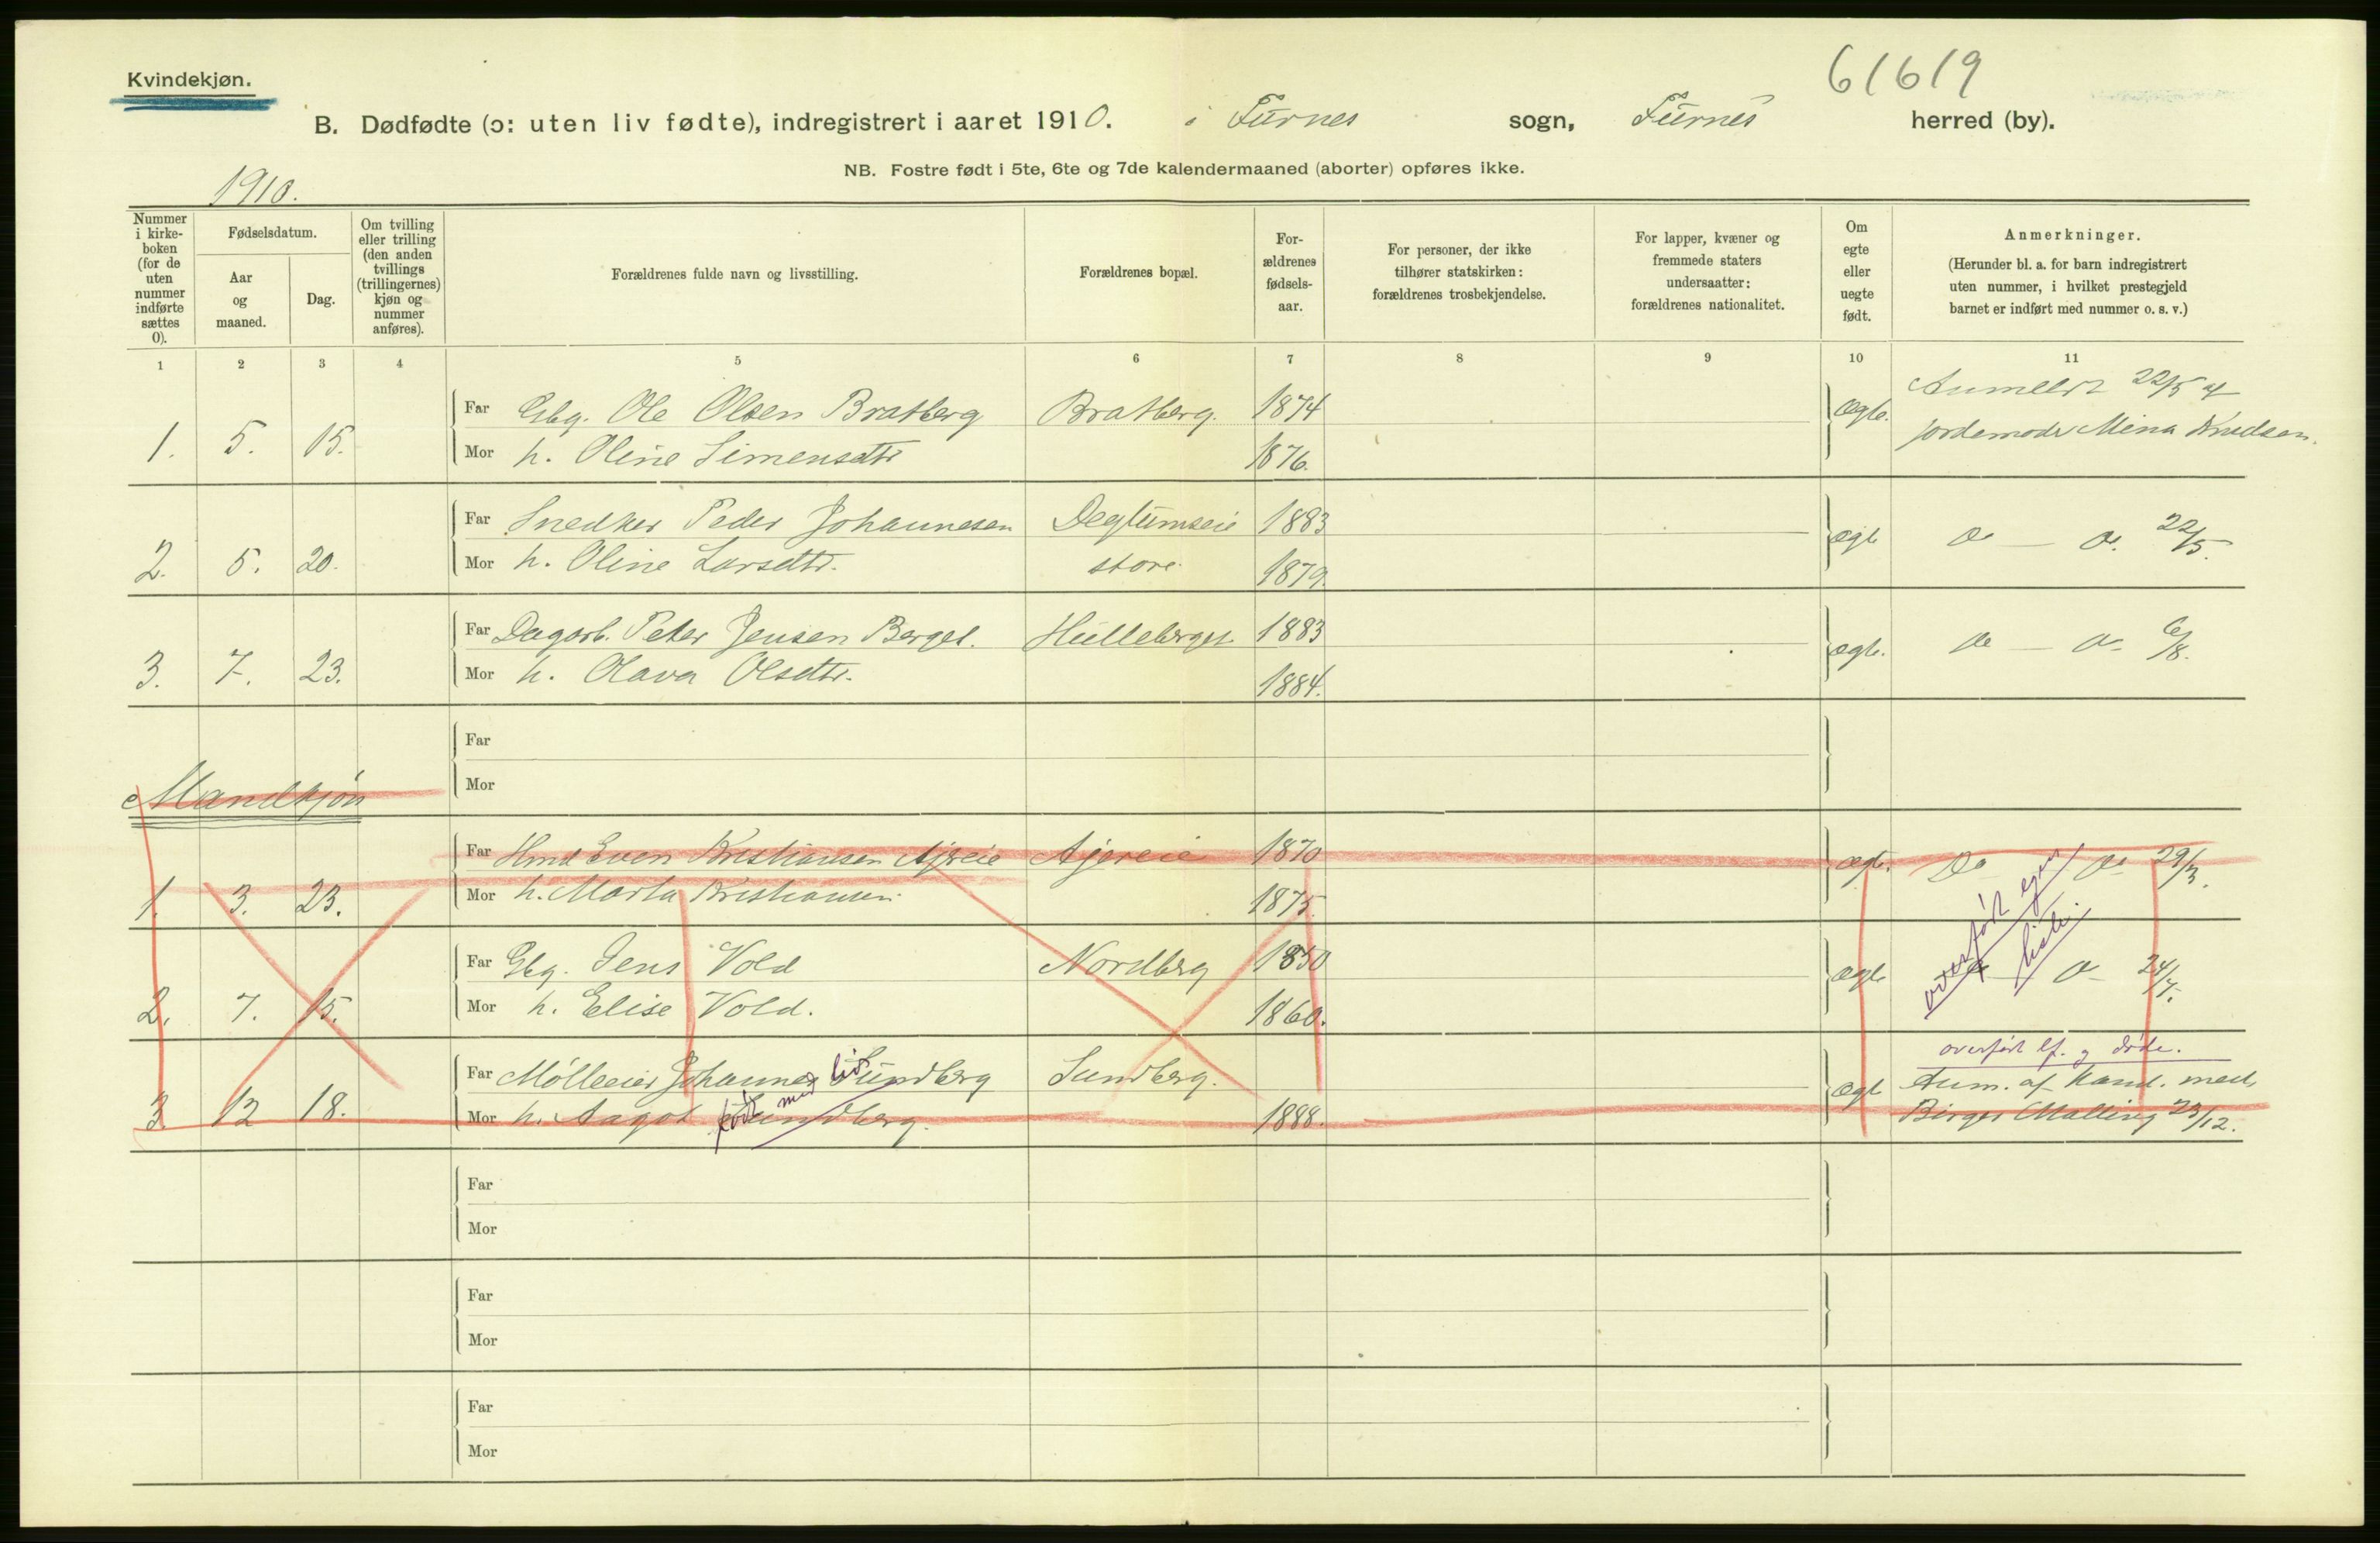 61619
Kvindekjøn.
B. Dødfødte (ɔ: uten liv fødte), indregistrert i aaret 1910. i Furnes sogn, Furnes herred (by).
NB. Fostre født i 5te, 6te og 7de kalendermaaned (aborter) opføres ikke.
1910.
Nummer i kirke-boken (for de uten nummer indførte sættes 0).
Fødselsdatum.
Aar og maaned.
Dag.
Om tvilling eller trilling (den anden tvillings (trillingernes) kjøn og nummer anføres).
Forældrenes fulde navn og livsstilling.
Forældrenes bopæl.
For-ældrenes fødsels-aar.
For personer, der ikke tilhører statskirken: forældrenes trosbekjendelse.
For lapper, kvæner og fremmede staters undersaatter: forældrenes nationalitet.
Om egte eller uegte født.
Anmerkninger.
(Herunder bl. a. for barn indregistrert uten nummer, i hvilket prestegjeld barnet er indført med nummer o. s. v.)
1 2 3 4 5 6 7 8 9 10 11
Far Gbg. Ole Olsen Bratberg Bratberg. 1874 ægte. Anmeldt 22/5 af
1. 5. 15. Mor h. Oline Simensdtr 1876. jordemoder Mina Knudsen.
Far Snedker Peder Johannesen Deglumseie 1883 ægte Do — Do. 22/5.
2. 5. 20. Mor h. Oline Larsdtr. store 1879.
Far Dagarb. Peter Jensen Berget. Hulleberget 1883 ægte. Do — Do 6/8.
3. 7. 23. Mor h. Olava Olsdtr. 1884.
Far
Mor
Mandkjøn
Far Hmd Even Kristiansen Ajereie Ajereie 1870 ægte. Do Do 29/3.
1. 3. 23. Mor h. Marta Kristiansen. 1875.
overført egen liste.
Far Gbg. Jens Vold Nordberg 1850 ægte Do 24/7.
2. 7. 15. Mor h. Elise Vold. 1860.
overført lf. og døde.
Far Mølleeier Johannes Sundberg Sundberg. ægte Anm. af Kand. med.
født med liv
3 12 18. Mor h. Aagot Sundberg. 1888. Birger Malling 23/12.
Far
Mor
Far
Mor
Far
Mor